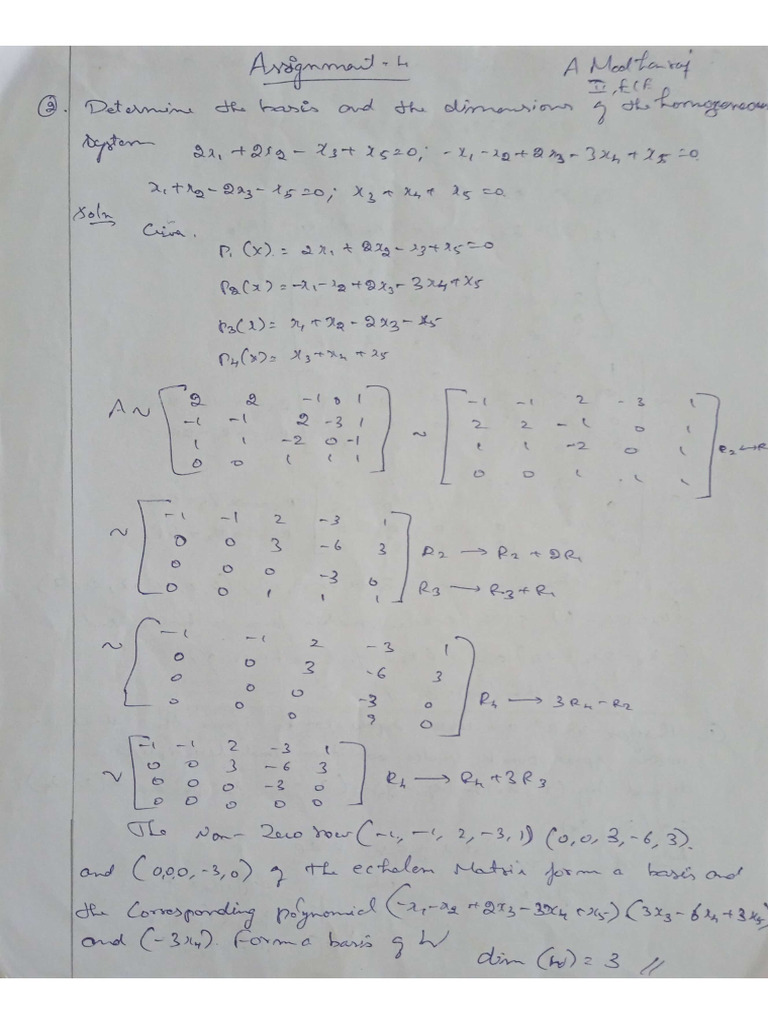 Assignment - 4
A Madhanraj
II, ECE
②. Determine the basis and the dimensions of the homogeneous
System 2x₁ + 2x₂ - x₃ + x₅ = 0; -x₁ - x₂ + 2x₃ - 3x₄ + x₅ = 0
x₁ + x₂ - 2x₃ - x₅ = 0; x₃ + x₄ + x₅ = 0
Soln
P₁(x) = 2x₁ + 2x₂ - x₃ + x₅ = 0
P₂(x) = -x₁ - x₂ + 2x₃ - 3x₄ + x₅
P₃(x) = x₁ + x₂ - 2x₃ - x₅
P₄(x) = x₃ + x₄ + x₅
A ~
2 2 -1 0 1
-1 -1 2 -3 1
1 1 -2 0 -1
0 0 1 1 1
~
-1 -1 2 -3 1
2 2 -1 0 1
1 1 -2 0 1
0 0 1 1 1
R₂ ↔ R
~
-1 -1 2 -3 1
0 0 3 -6 3
0 0 0 -3 0
0 0 1 1 1
R₂ → R₂ + 2R₁
R₃ → R₃ + R₁
~
-1 -1 2 -3 1
0 0 3 -6 3
0 0 0 -3 0
0 0 0 9 0
R₄ → 3R₄ - R₂
~
-1 -1 2 -3 1
0 0 3 -6 3
0 0 0 -3 0
0 0 0 0 0
R₄ → R₄ + 3R₃
The Non-Zero row (-1, -1, 2, -3, 1) (0, 0, 3, -6, 3).
and (0,0,0, -3, 0) of the echalen Matrix form a basis and
the Corresponding polynomial (-x₁ - x₂ + 2x₃ - 3x₄ + x₅) (3x₃ - 6x₄ + 3x₅)
and (-3x₄). Form a basis of W
dim (W) = 3 //